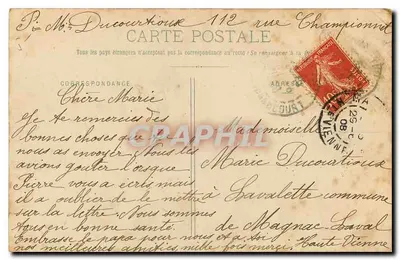 Pin Mr Ducourtioux 112 rue Championnet
CARTE POSTALE
Tous les pays étrangers n'acceptent pas la correspondance au verso. Se renseigner à la
CORRESPONDANCE
Chère Marie
Je te remercies des
bonnes choses que tu
nous as envoyer Nous les
avions gouter l'orsque
Pierre vous a écris mais
il a oublier de le mettre
sur la lettre Nous sommes
tous en bonne santé.
Embrasse le papa pour nous et a toi
nos meilleures amitiés mille fois merci.
ADRESSE
Mademoiselle
Marie Ducourtioux
à Lavalette commune
de Magnac Laval
Haute Vienne
CPHRAGIL